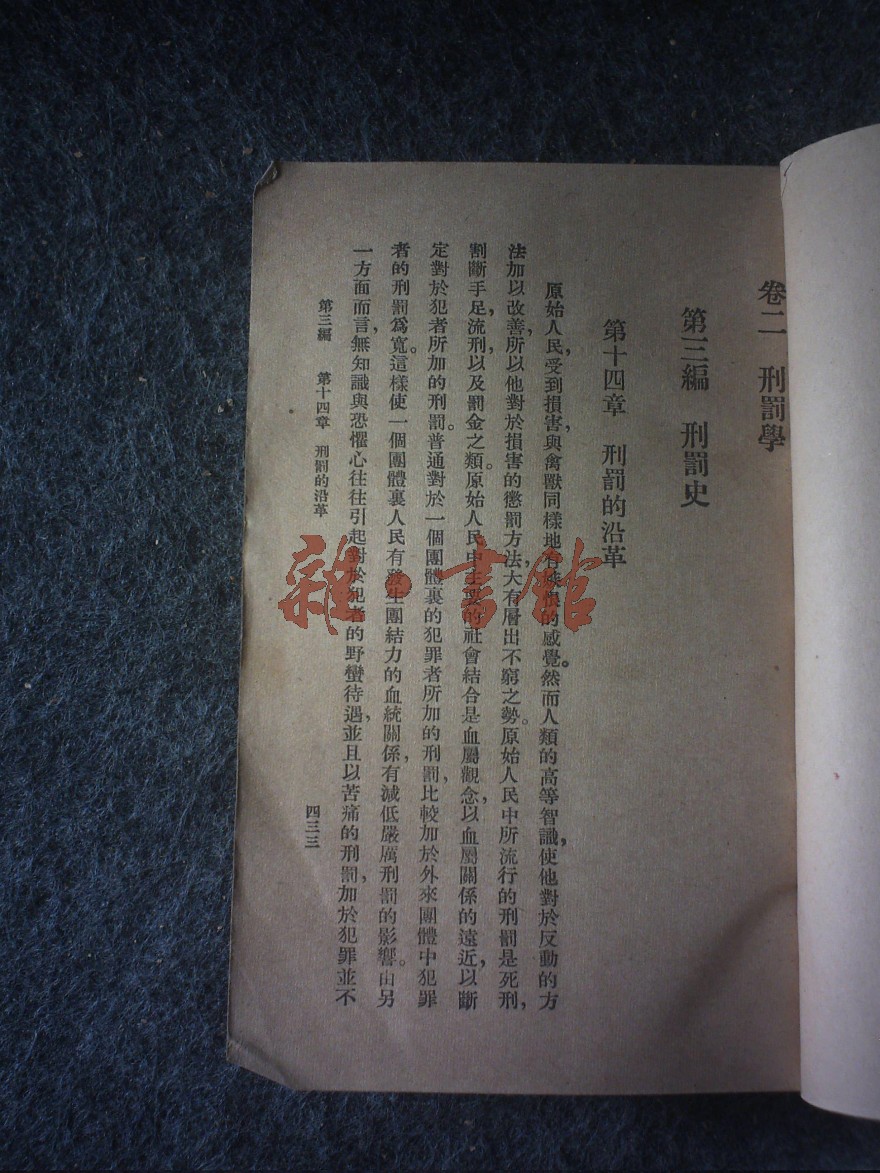 卷二　刑罰學
第三編　刑罰史
第十四章　刑罰的沿革
原始人民，受到損害，與禽獸同樣地有憤恨的感覺。然而人類的高等智識，使他對於反動的方
法加以改善，所以他對於損害的懲罰方法，大有層出不窮之勢。原始人民中所流行的刑罰是死刑，
割斷手足，流刑，以及罰金之類。原始人民中主要的社會結合是血屬觀念，以血屬關係的遠近，以斷
定對於犯者所加的刑罰。普通對於一個團體裏的犯罪者所加的刑罰，比較加於外來團體中犯罪
者的刑罰爲寬。這樣使一個團體裏人民有發生團結力的血統關係，有減低嚴厲刑罰的影響。由另
一方面而言，無知識與恐懼心往往引起對於犯者的野蠻待遇，並且以苦痛的刑罰，加於犯罪並不
第三編　第十四章　刑罰的沿革
四三三
雜·書館